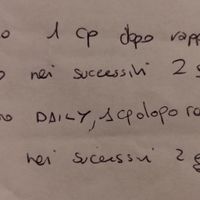 o 1 cp dopo rapp
o nei successivi 2 g
no DAILY, 1 cp dopo ra
nei successivi 2 g